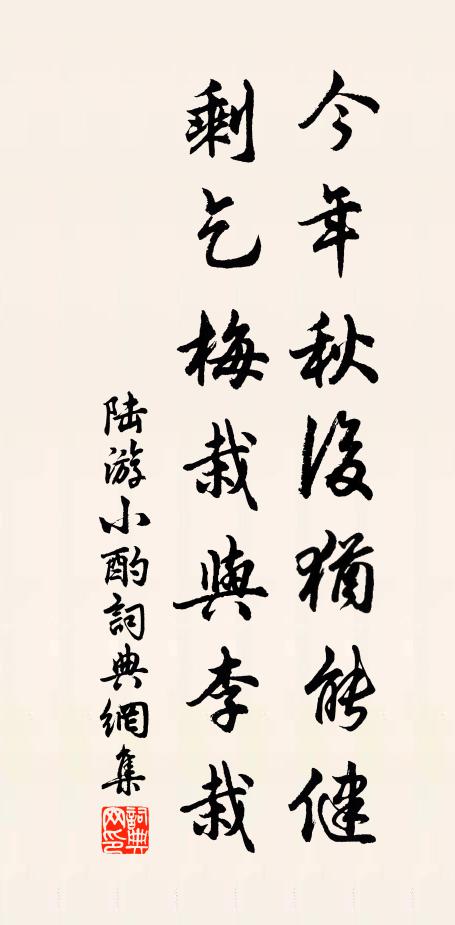 今年秋後猶能健
剩乞梅栽與李栽
陆游小酌詞典網集
詞典网印